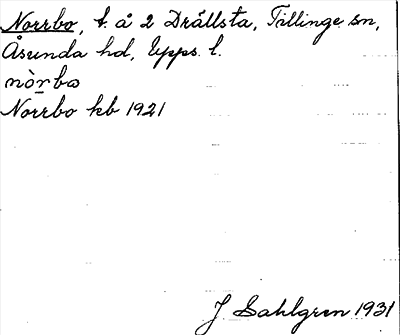 Norrbo, t. å 2 Drällsta, Tillinge sn,
Åsunda hd, Upps. l.
nòrbo
Norrbo kb 1921
J. Sahlgren 1931